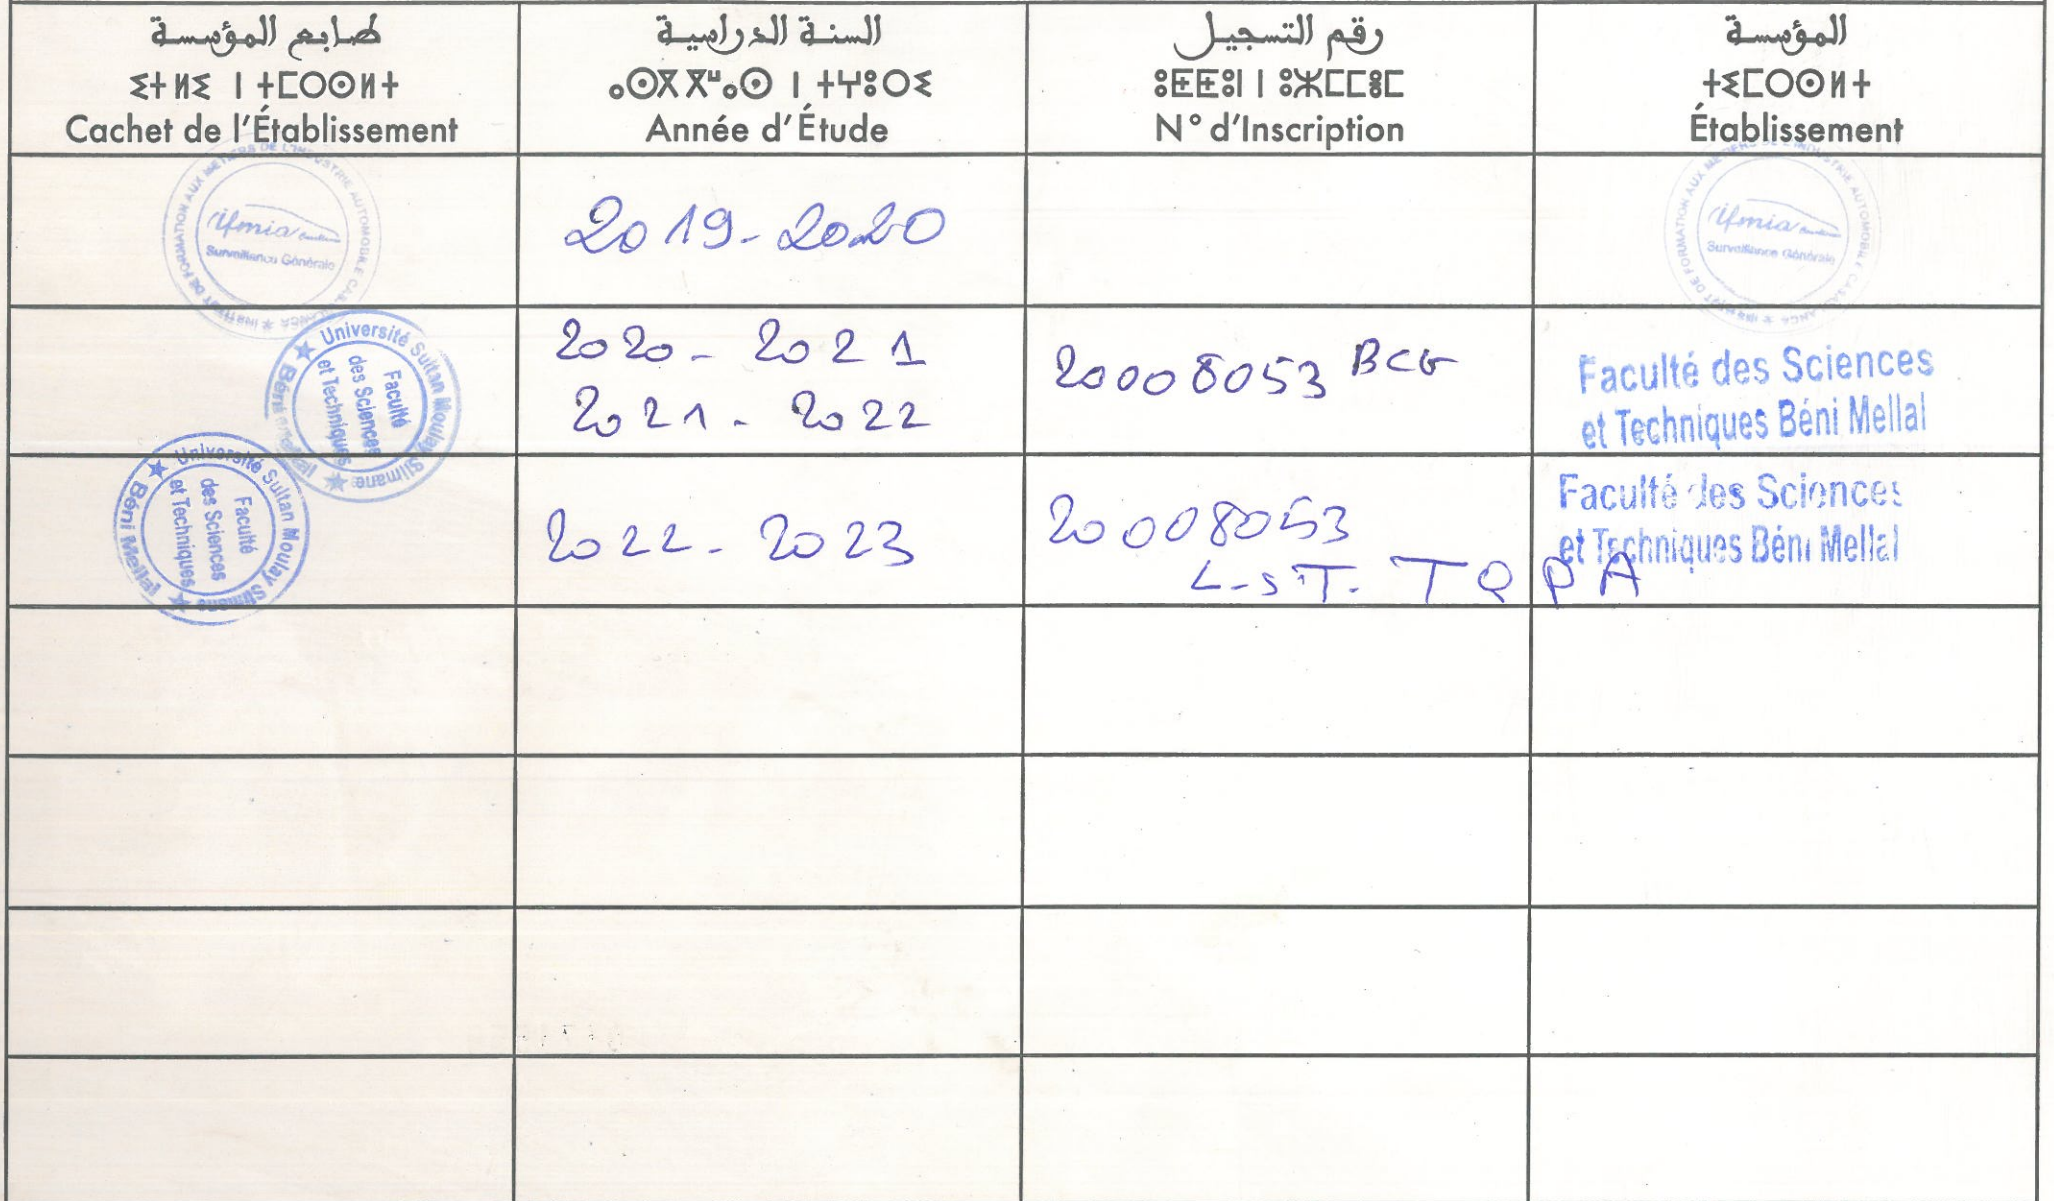 طابع المؤسسة
ⵉⵜⵍⵉ ⵏ ⵜⵎⵔⵙⵍⵜ
Cachet de l'Établissement
السنة الدراسية
ⴰⵙⴳⴳⵯⴰⵙ ⵏ ⵜⵖⵓⵔⵉ
Année d'Étude
رقم التسجيل
ⵓⵟⵟⵓⵏ ⵏ ⵓⵣⵎⵎⵓⵎ
N° d'Inscription
المؤسسة
ⵜⵉⵎⵔⵙⵍⵜ
Établissement
INSTITUT DE FORMATION AUX METIERS DE L'INDUSTRIE AUTOMOBILE CASABLANCA
ifmia
Surveillance Générale
2019-2020
INSTITUT DE FORMATION AUX METIERS DE L'INDUSTRIE AUTOMOBILE CASABLANCA
ifmia
Surveillance Générale
Université Sultan Moulay Slimane
Béni Mellal
Faculté
des Sciences
et Techniques
2020-2021
2021-2022
20008053 BCG
Faculté des Sciences
et Techniques Béni Mellal
Université Sultan Moulay Slimane
Béni Mellal
Faculté
des Sciences
et Techniques
2022-2023
20008053
L-ST. TQPA
Faculté des Sciences
et Techniques Béni Mellal